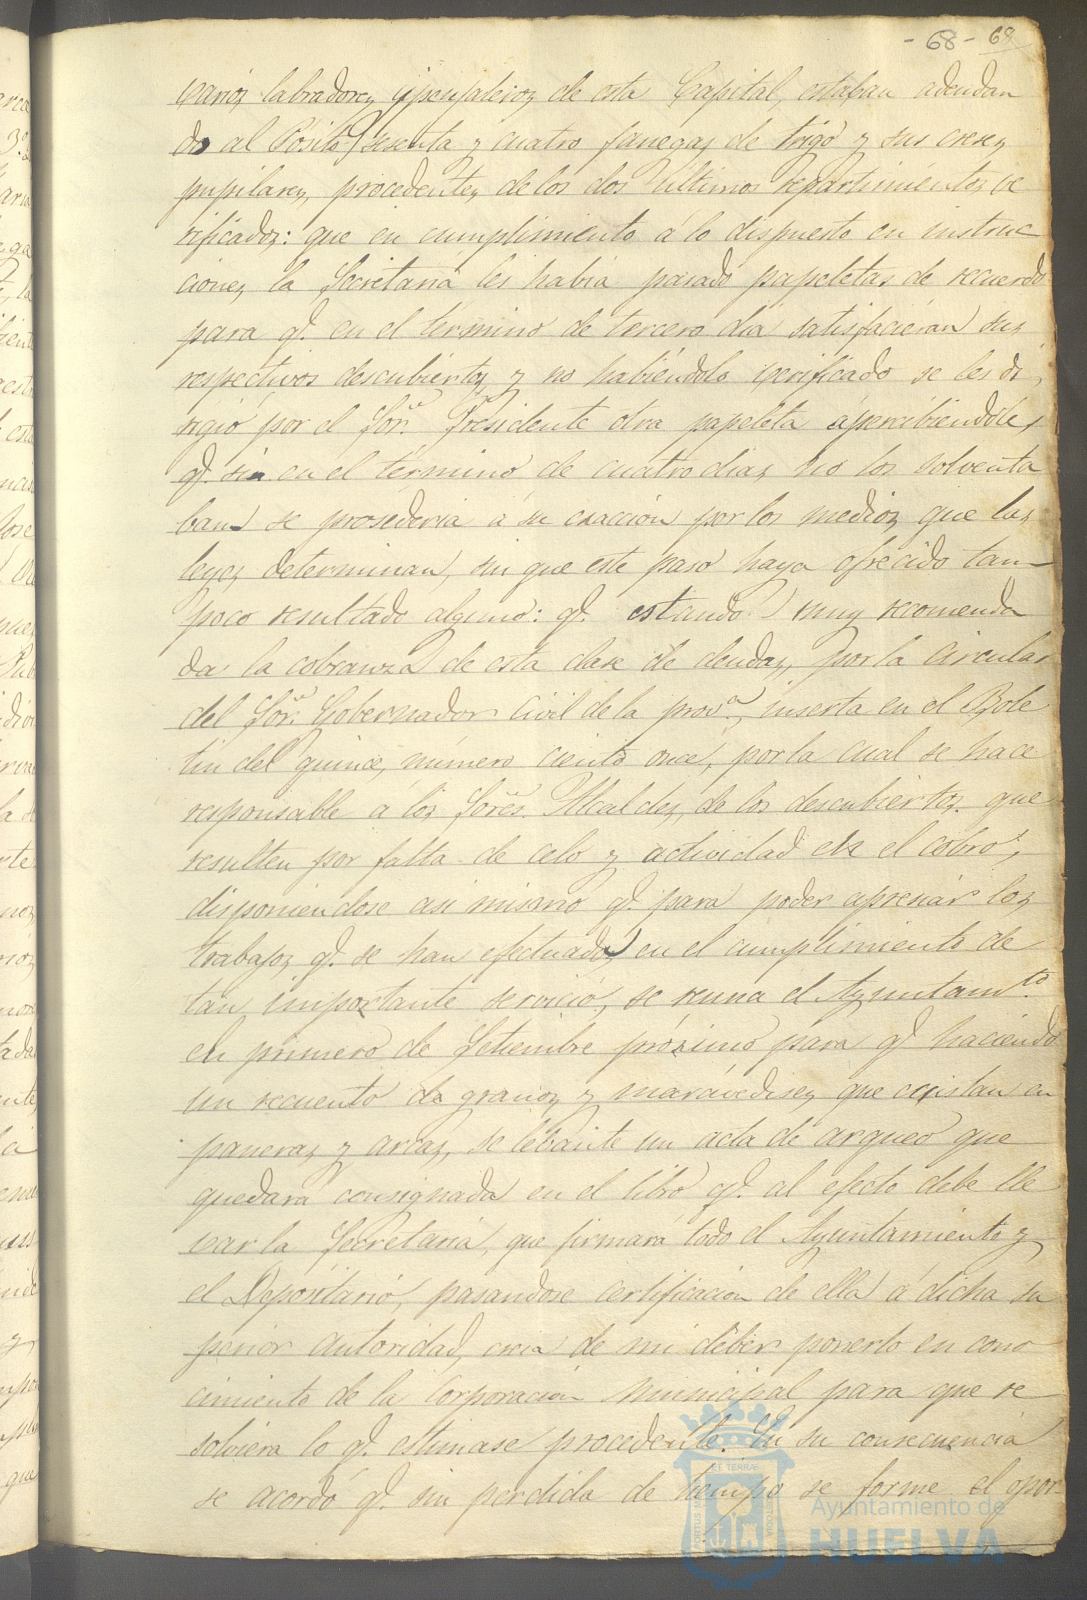 - 68 - 68
varios labradores y pensaleros de esta Capital, estaban adeudan
do al Pósito sesenta y cuatro fanegas de trigo y sus creses
pupilares, procedentes de los dos últimos repartimientos ve
rificados: que en cumplimiento á lo dispuesto en instruc
ciones la Secretaria les habia pasado papeletas de recuerdo
para qe. en el termino de tercero dia satisfacieran sus
respectivos descubiertos y no habiéndolo verificado se les di
rigió por el Sor. Presidente otra papeleta apercibiendoles,
qe. sin en el término de cuatro dias no los solventa
ban se prosederia á su exacción por los medios que las
leyes determinan, sin que este paso haya ofrecido tam
poco resultado alguno: qe. estando muy recomenda
da la cobranza de esta clase de deudas, por la Circular
del Sor. Gobernador Civil de la prova., inserta en el Bole
tin del quince, número ciento once, por la cual se hace
responsable á los Sores. Alcaldes, de los descubiertos que
resulten por falta de celo y actividad en el cobro,
disponiendose asi mismo qe. para poder apresiar los
trabajos qe. se han efectuado en el cumplimiento de
tan importante servicio, se reuna el Ayuntamto.
en primero de Setiembre próximo para qe. haciendo
un recuento de granos y maravedises que existan en
paneras y arcas, se lebante un acta de arqueo que
quedara consignada en el libro qe. al efecto debe lle
var la Secretaria, que firmará todo el Ayuntamiento y
el Depositario, pasandose certificacion de ella á dicha su
perior autoridad, creia de mi deber ponerlo en cono
cimiento de la Corporación Municipal para que re
solviera lo qe. estimase procedente. En su consecuencia
se acordó qe. sin perdida de tiempo se forme el opor
Ayuntamiento de
HUELVA